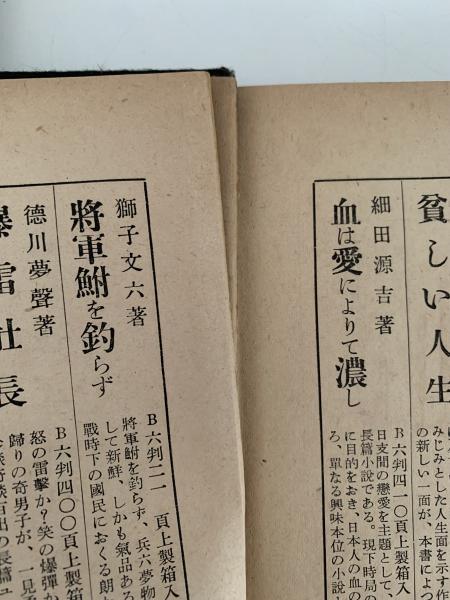 貧しい人生
みじみとした人生面を示す作
の新しい一面が、本書によつ
細田源吉著
血は愛によりて濃し
B六判四一〇頁上製箱入
日支間の戀愛を主題として、
長篇小說である。現下時局の
に目的をおき、日本人の血の
ろ、單なる興味本位の小說
獅子文六著
將軍鮒を釣らず
B六判二二 頁上製箱入
將軍鮒を釣らず、兵六夢物
して新鮮、しかも氣品ある
戰時下の國民におくる朗
德川夢聲著
爆雷社長
B六判四〇〇頁上製箱
怒の雷擊か？笑の爆彈か
歸りの奇男子が、一見